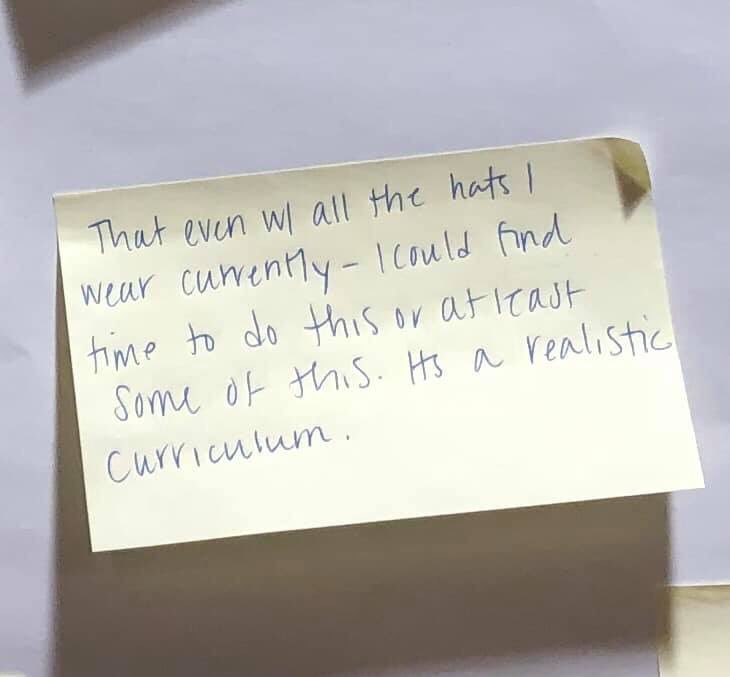 That even w/ all the hats I
wear currently - I could find
time to do this or at least
some of this. Its a realistic
curriculum.